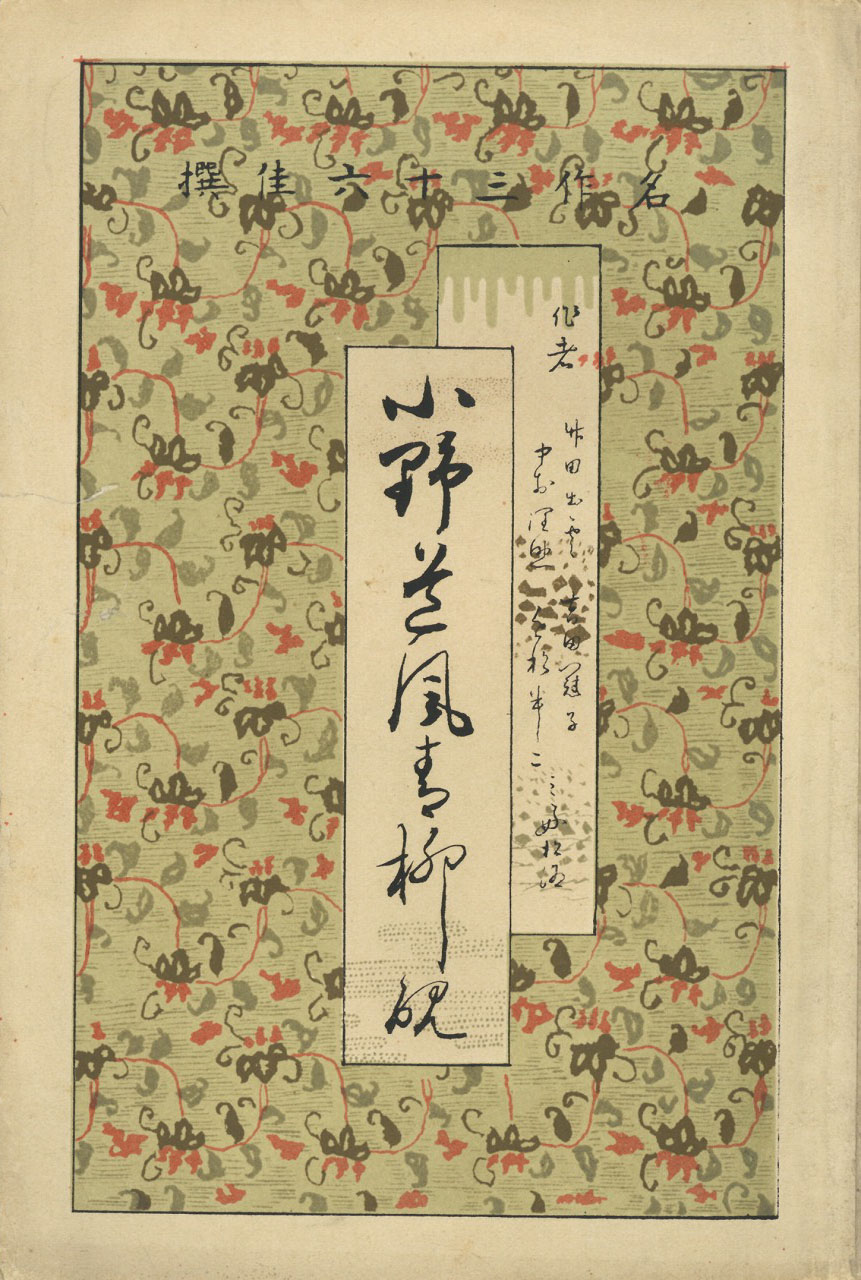 名作三十六佳撰
作者
竹田出雲 吉田冠子
中邑閏助 近松半二 三好松洛
小野道風青柳硯